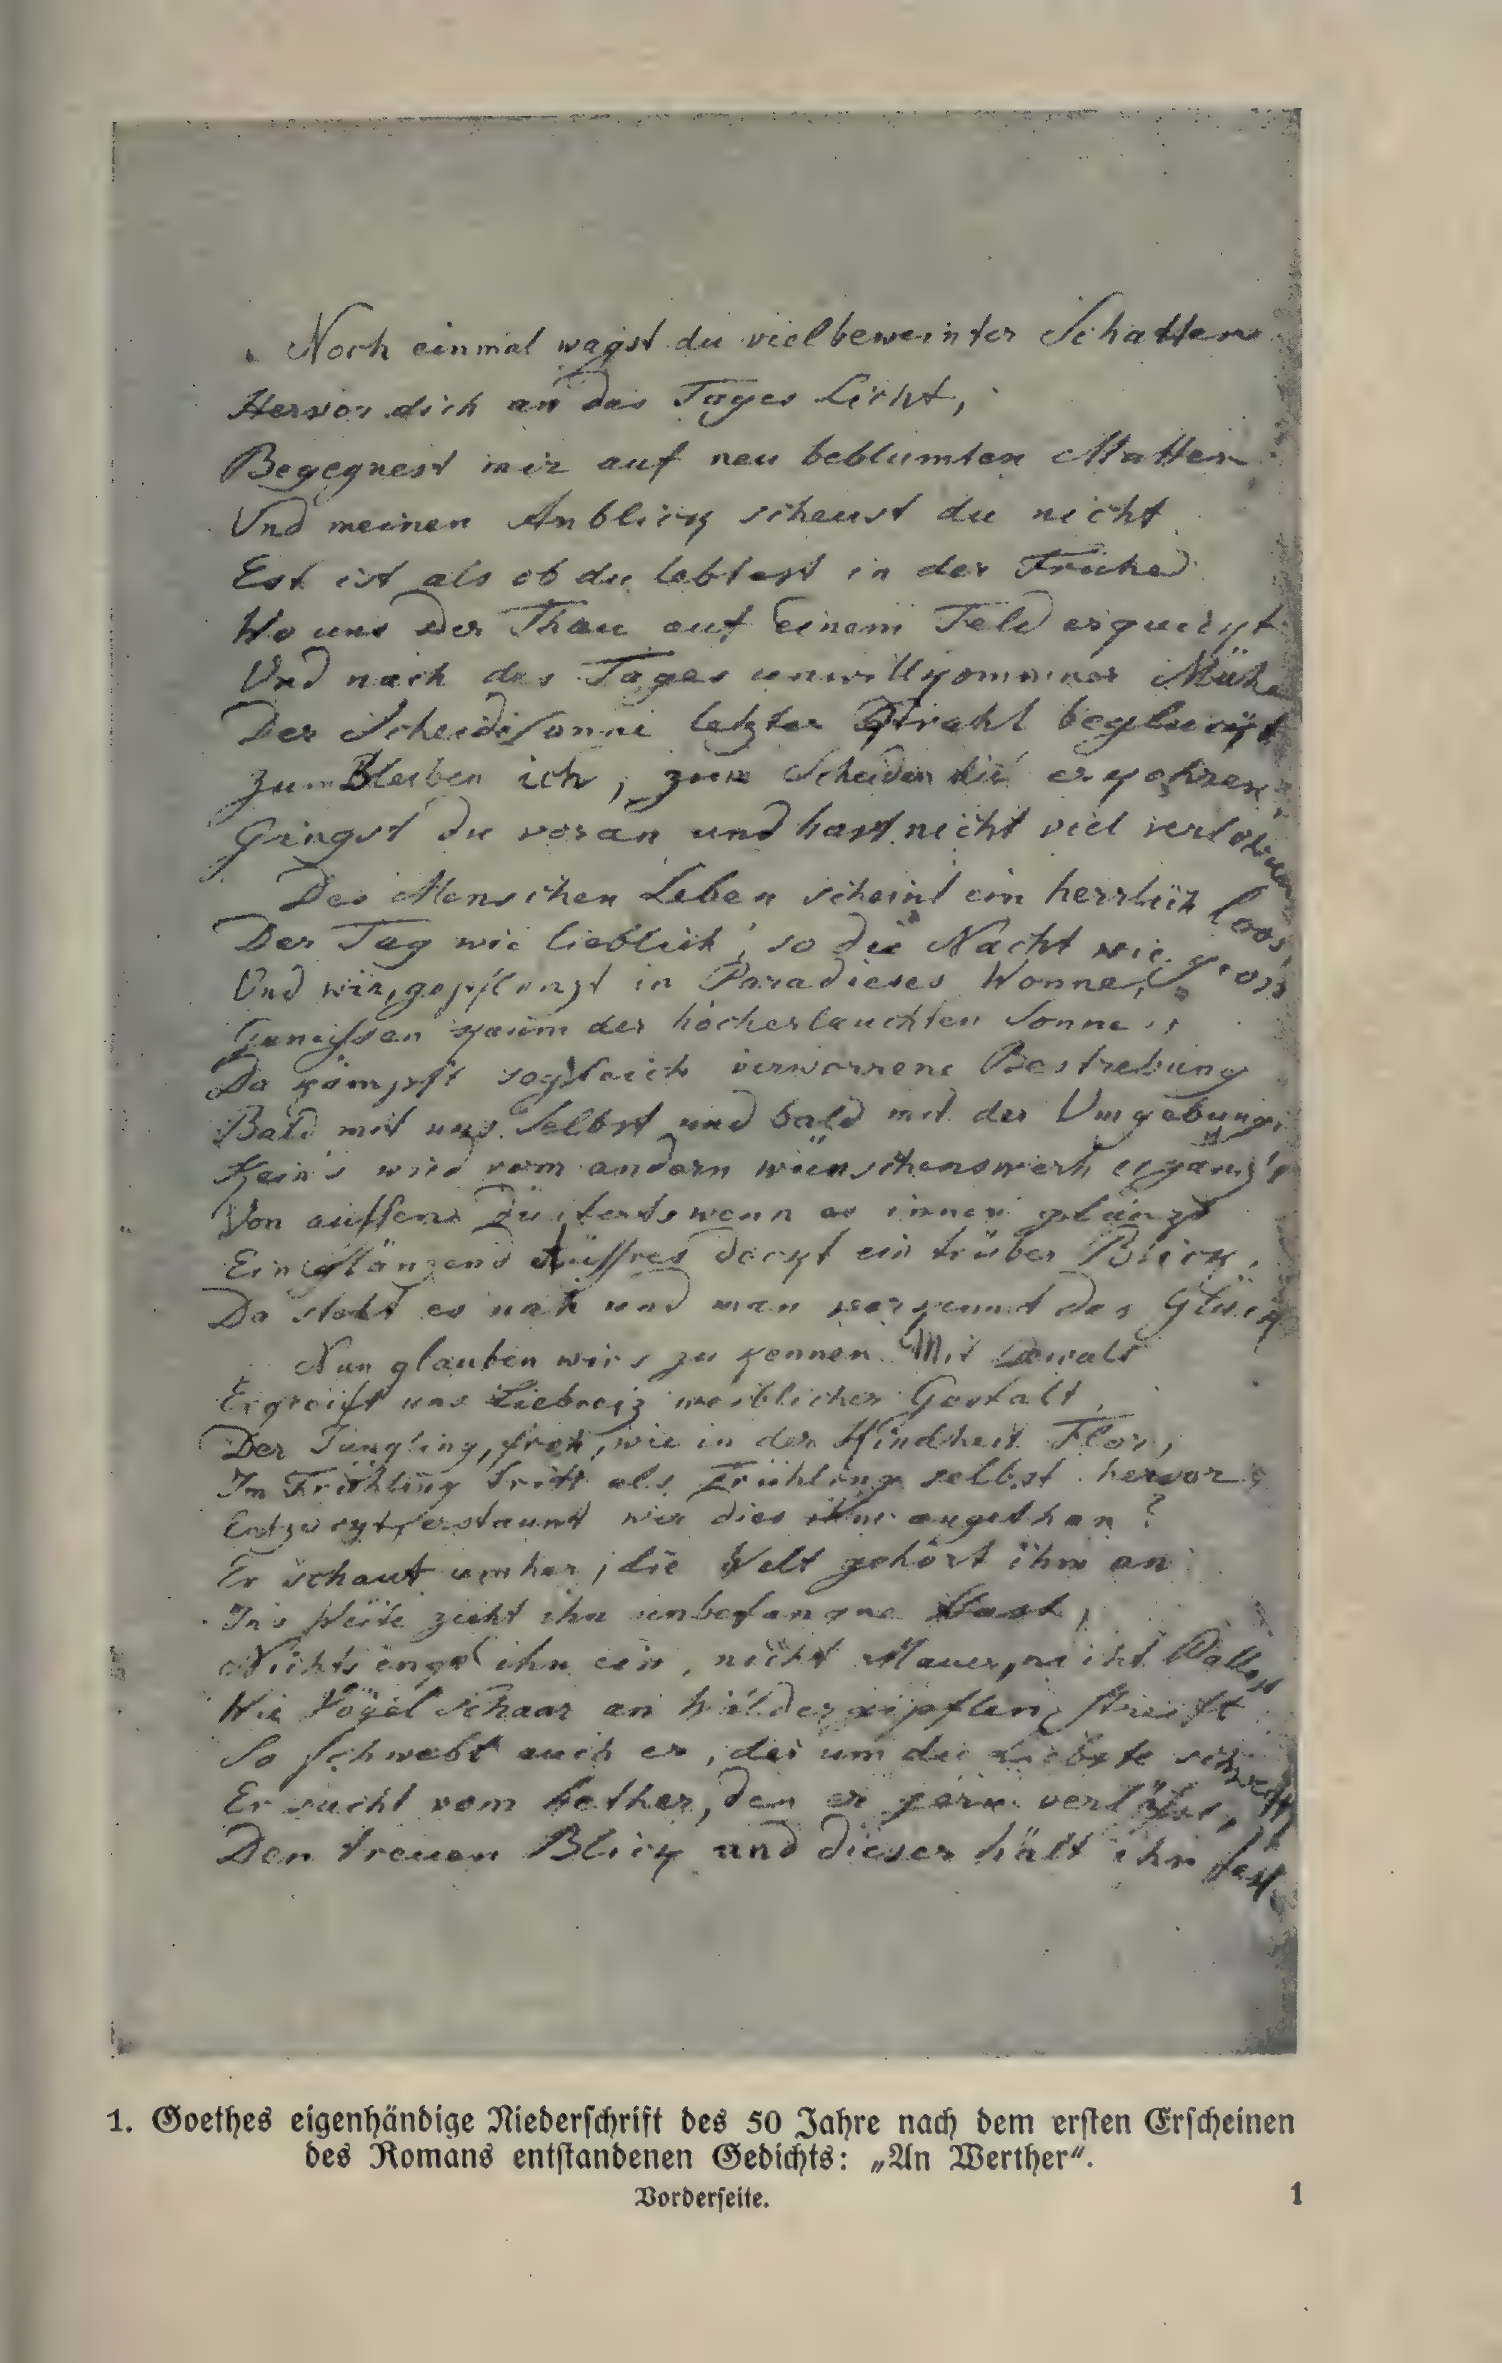 Noch einmal wagst du vielbeweinter Schatten
Hervor dich an das Tages Licht,
Begegnest mir auf neu beblumten Matten
Und meinen Anblick scheust du nicht
Est ist als ob du lebtest in der Frühe
Wo uns der Thau auf einem Feld erquickt
Und nach des Tages unwillkommner Mühe
Der Scheidesonne letzter Strahl beglückt
Zum Bleiben ich, zum Scheiden du erkohren
Gingst du voran und hast nicht viel verlohren
Des Menschen Leben scheint ein herrlich Loos
Der Tag wie lieblich, so die Nacht wie gros
Und wir, gepflanzt in Paradieses Wonne,
Geniessen kaum der hocherlauchten Sonne
Da kämpft sogleich verworrene Bestrebung
Bald mit uns Selbst und bald mit der Umgebung,
Keins wird vom andern wünschenswerth ergänzt
Von aussen düsterts wenn es innen glänzt
Ein glänzend Äussres deckt ein trüber Blick,
Da steht es nah und man verkennt das Glück
Nun glauben wirs zu kennen. Mit Gewalt
Ergreift uns Liebreiz weiblicher Gestalt,
Der Jüngling, froh, wie in der Kindheit Flor,
Im Frühling tritt als Frühling selbst hervor
Entzückt, erstaunt wer dies ihm angethan?
Er schaut umher, die Welt gehört ihm an
Ins Weite zieht ihn unbefangne Hast,
Nichts engt ihn ein, nicht Mauer, nicht Pallast
Wie Vögel Schaar an Wäldergipflen streift
So schwebt auch er, der um die Liebste schweift
Er sucht vom Aether, den er gern verläßt,
Den treuen Blick und dieser hält ihn fest.
1. Goethes eigenhändige Niederschrift des 50 Jahre nach dem ersten Erscheinen
des Romans entstandenen Gedichts: „An Werther“.
Vorderseite.
1